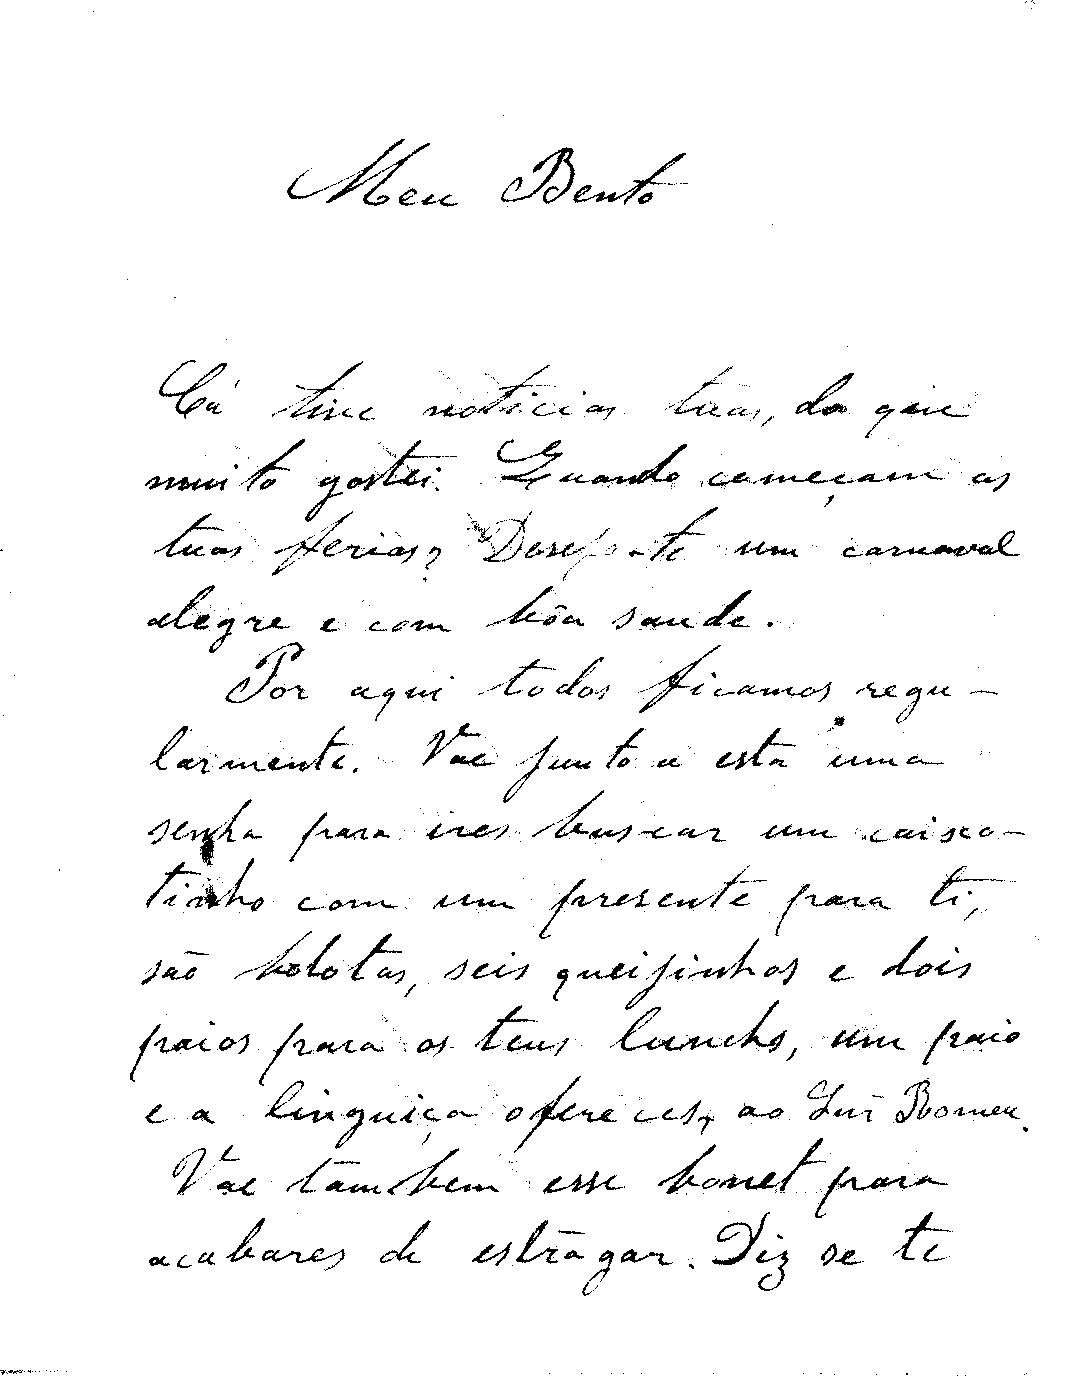 Meu Bento
Cá tive noticias tuas, do que
muito gostei. Quando começam as
tuas ferias? Desejo-te um carnaval
alegre e com bôa saude.
Por aqui todos ficamos regu-
larmente. Vae junto a esta uma
senha para ires buscar um caixo-
tinho com um presente para ti,
são bolotas, seis queijinhos e dois
paios para os teus lunchs, um paio
e a linguiça ofereces, ao Romeu.
Vae tambem esse bonet para
acabares de estragar. Diz se te